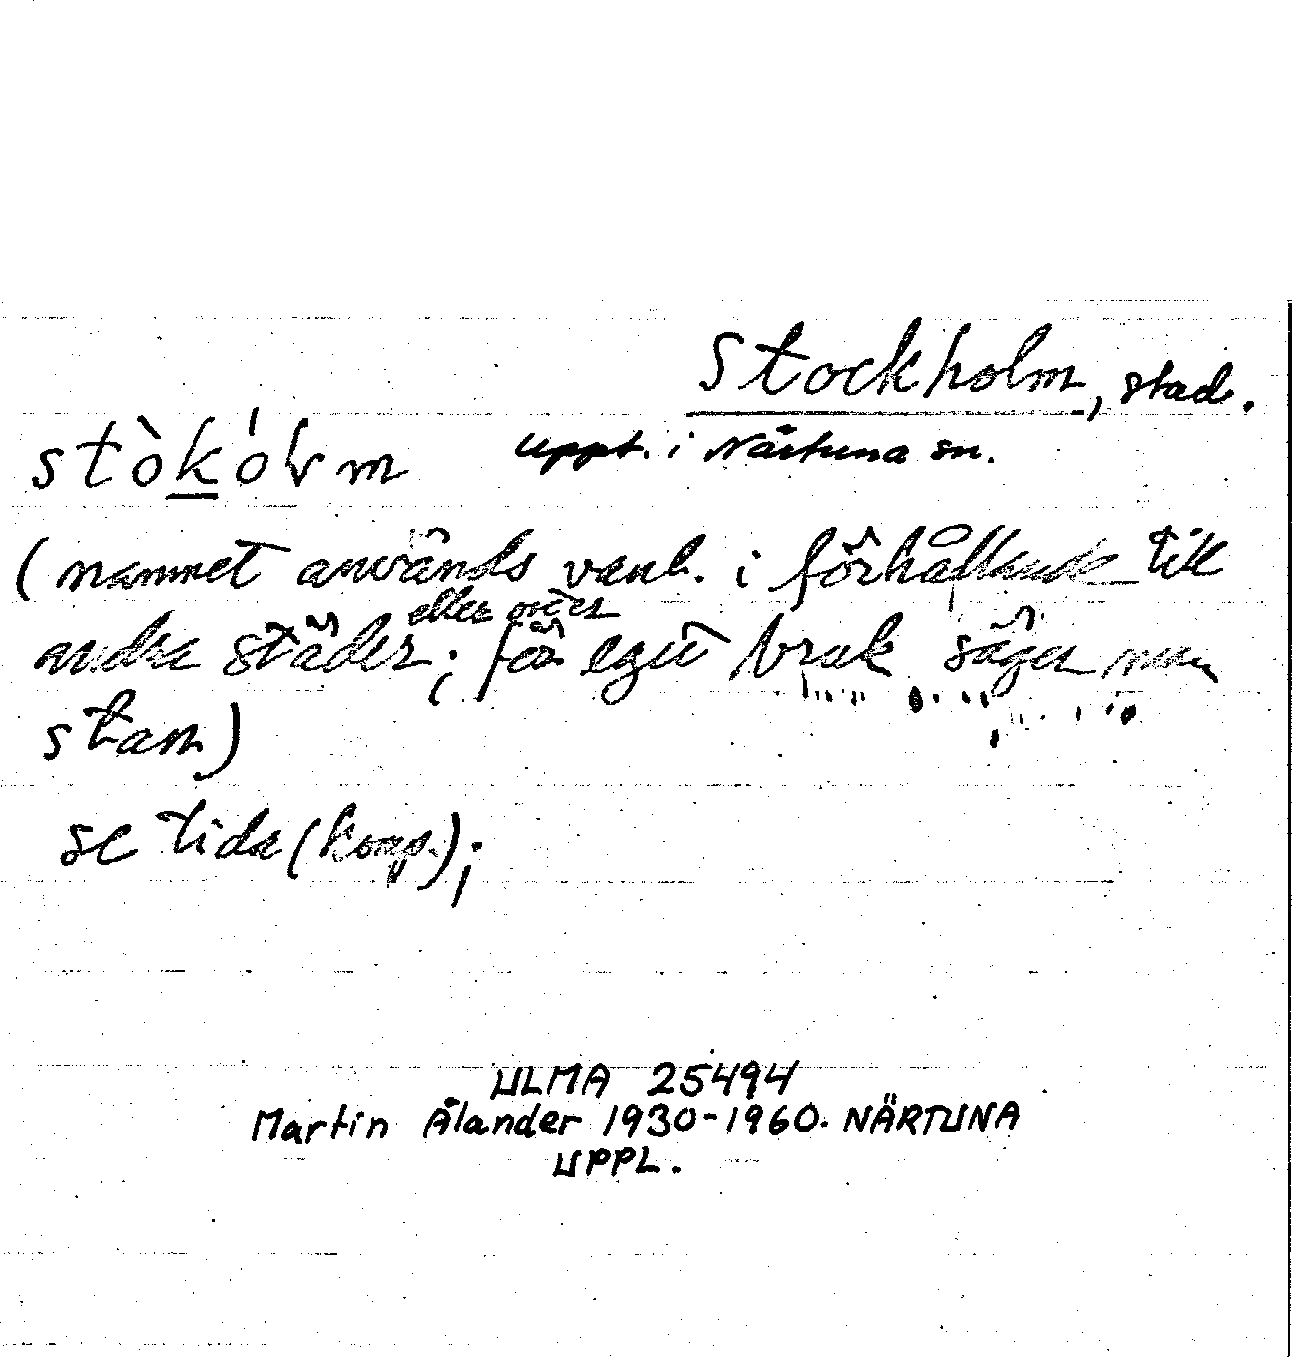 Stockholm, stad.
stòkólvm uppt. i Närtuna sn.
(namnet används vanl. i förhållande till
andra städer eller orter; för eget bruk säger man
stan)
se tida (komp.);
ULMA 25494
Martin Ålander 1930-1960. NÄRTUNA
UPPL.